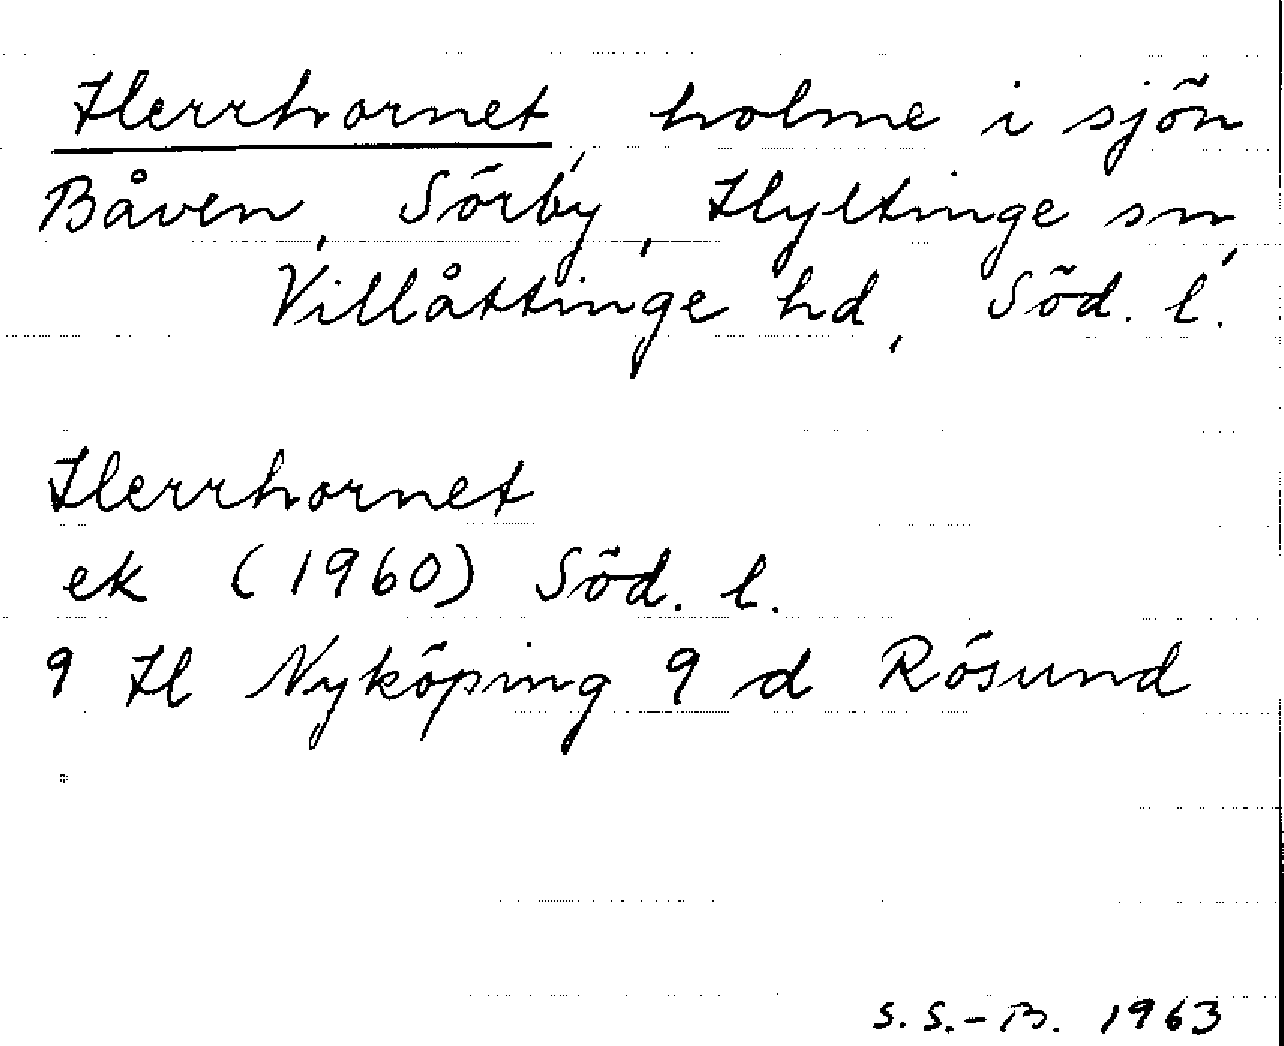 Herrhornet, holme i sjön
Båven, Sörby, Hyltinge sn,
Villåttinge hd, Söd. l.
Herrhornet
ek (1960) Söd. l.
9 H Nyköping 9 d Rösund
S. S.-B. 1963